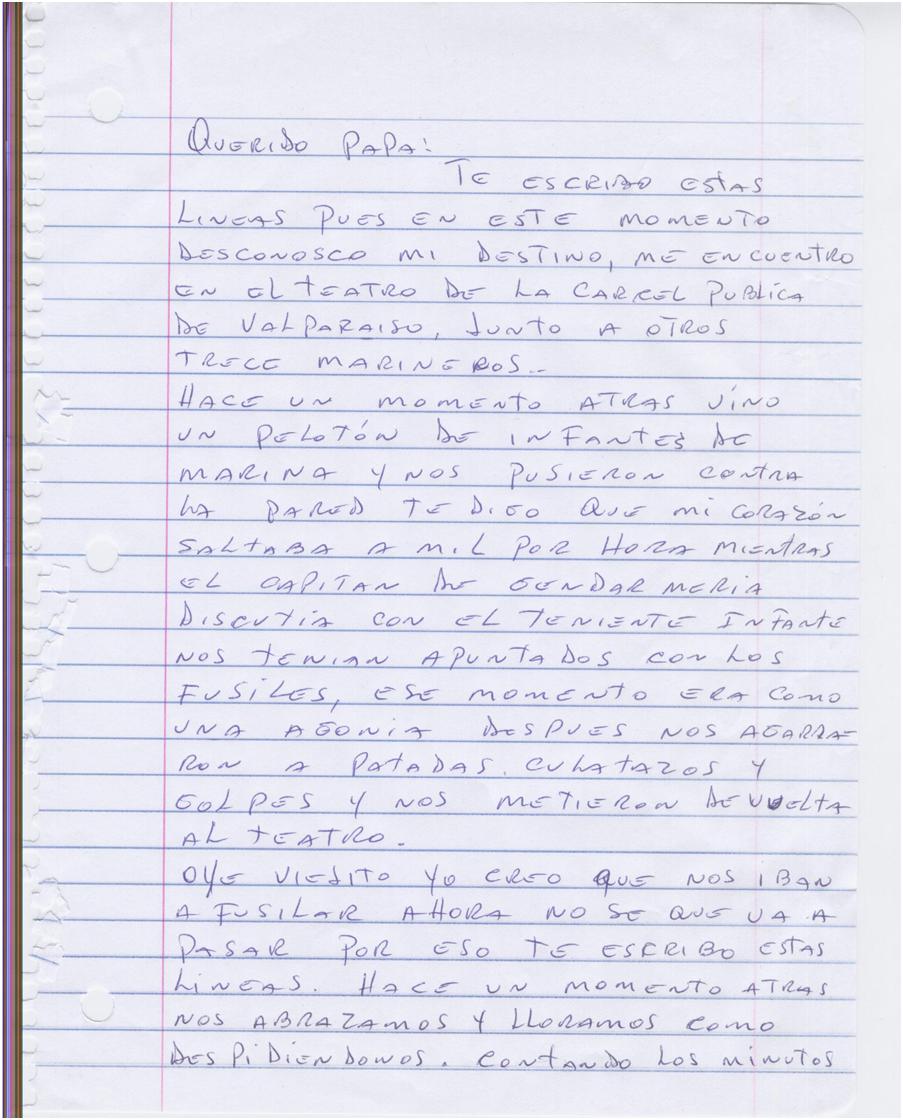 QUERIDO PAPA:
TE ESCRIBO ESTAS
LINEAS PUES EN ESTE MOMENTO
DESCONOSCO MI DESTINO, ME ENCUENTRO
EN EL TEATRO DE LA CARCEL PUBLICA
DE VALPARAISO, JUNTO A OTROS
TRECE MARINEROS..
HACE UN MOMENTO ATRAS VINO
UN PELOTÓN DE INFANTES DE
MARINA Y NOS PUSIERON CONTRA
LA PARED TE DIGO QUE MI CORAZÓN
SALTABA A MIL POR HORA MIENTRAS
EL CAPITAN DE GENDARMERIA
DISCUTIA CON EL TENIENTE INFANTE
NOS TENIAN APUNTADOS CON LOS
FUSILES, ESE MOMENTO ERA COMO
UNA AGONIA DESPUES NOS AGARRA-
RON A PATADAS. CULATAZOS Y
GOLPES Y NOS METIERON DEVUELTA
AL TEATRO.
OYE VIEJITO YO CREO QUE NOS IBAN
A FUSILAR AHORA NO SE QUE VA A
PASAR POR ESO TE ESCRIBO ESTAS
LINEAS. HACE UN MOMENTO ATRAS
NOS ABRAZAMOS Y LLORAMOS COMO
DESPIDIENDONOS. CONTANDO LOS MINUTOS